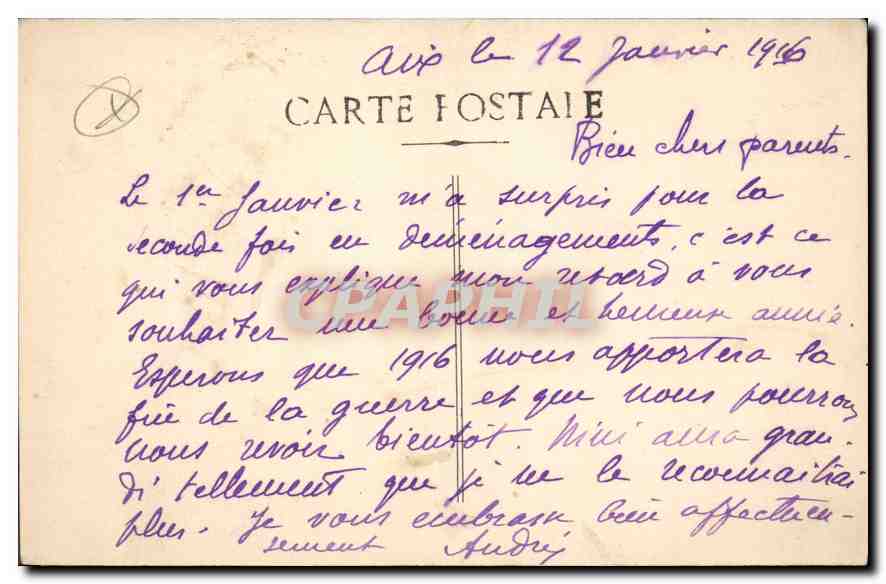 Aix le 12 Janvier 1916
CARTE POSTALE
Bien chers parents.
Le 1er Janvier m'a surpris pour la
seconde fois en déménagements, c'est ce
qui vous explique mon retard à vous
souhaiter une bonne et heureuse année.
CPAPHIL
Esperons que 1916 nous apportera la
fin de la guerre et que nous pourrons
nous revoir bientôt. Mini aura gran-
di tellement que je ne le reconnaîtrai
plus. Je vous embrasse bien affectueu-
sement André